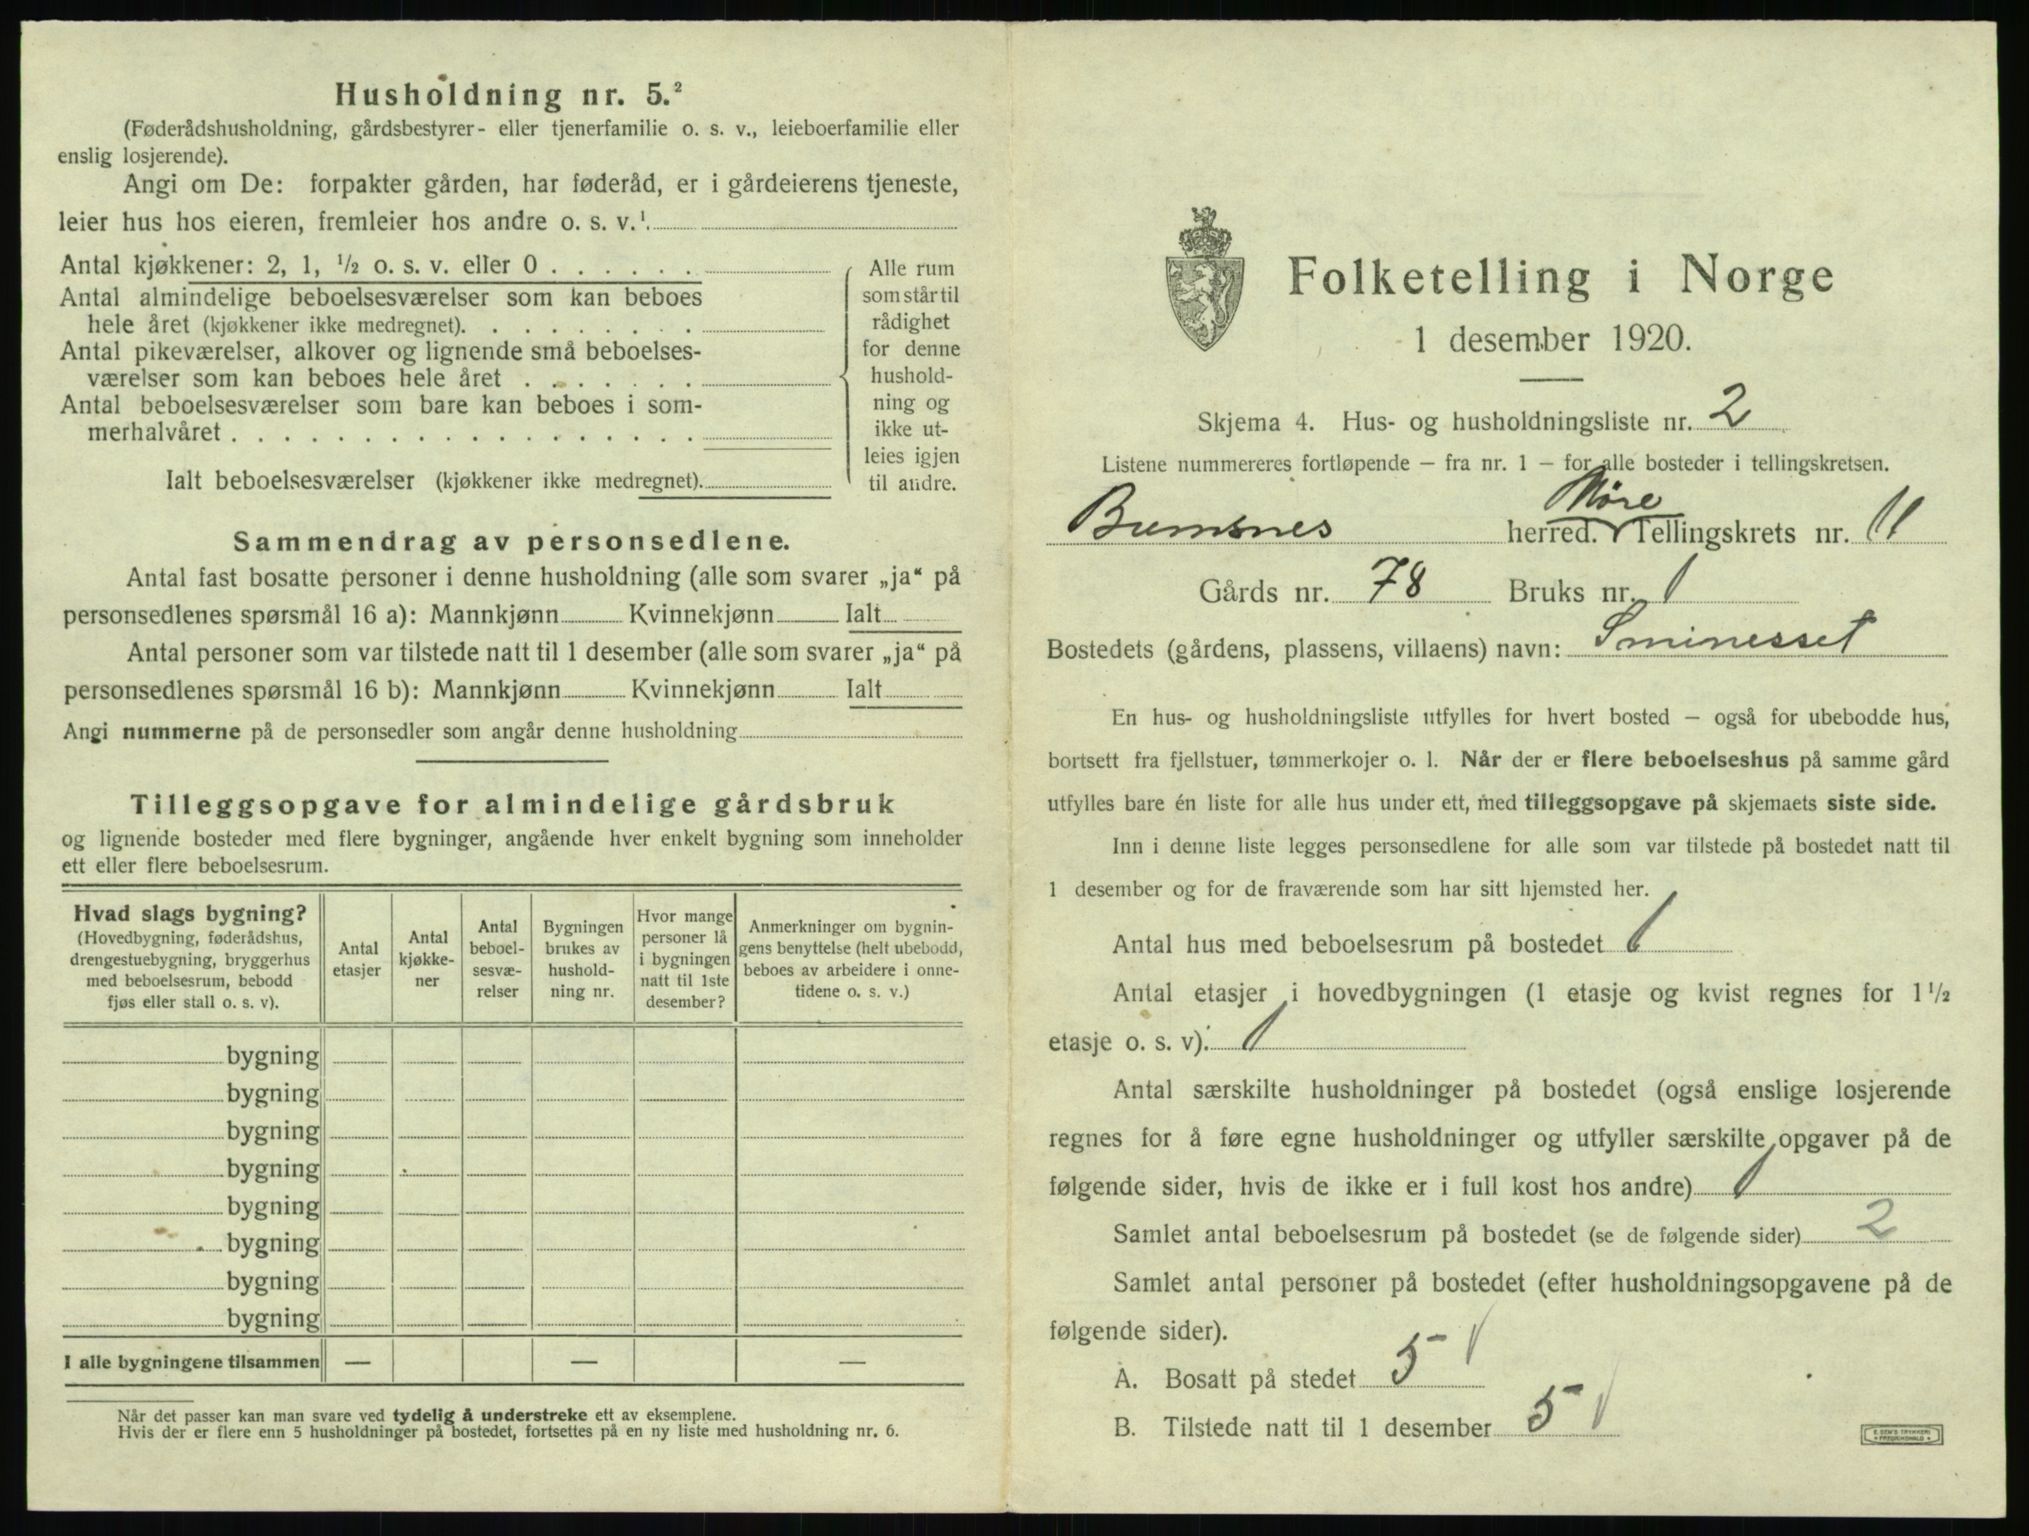 Husholdning nr. 5.²
(Føderådshusholdning, gårdsbestyrer- eller tjenerfamilie o. s. v., leieboerfamilie eller
enslig losjerende).
Angi om De: forpakter gården, har føderåd, er i gårdeierens tjeneste,
leier hus hos eieren, fremleier hos andre o. s. v.¹
Antal kjøkkener: 2, 1, ½ o. s. v. eller 0 . . . . . .
Antal almindelige beboelsesværelser som kan beboes
hele året (kjøkkener ikke medregnet). . . . . . . . .
Antal pikeværelser, alkover og lignende små beboelses-
værelser som kan beboes hele året . . . . . . .
Antal beboelsesværelser som bare kan beboes i som-
merhalvåret . . . . . . . . . . . . . . . . . .
Ialt beboelsesværelser (kjøkkener ikke medregnet).
Alle rum
som står til
rådighet
for denne
hushold-
ning og
ikke ut-
leies igjen
til andre.
Sammendrag av personsedlene.
Antal fast bosatte personer i denne husholdning (alle som svarer „ja“ på
personsedlenes spørsmål 16 a): Mannkjønn Kvinnekjønn Ialt
Antal personer som var tilstede natt til 1 desember (alle som svarer „ja“ på
personsedlenes spørsmål 16 b): Mannkjønn Kvinnekjønn Ialt
Angi nummerne på de personsedler som angår denne husholdning
Tilleggsopgave for almindelige gårdsbruk
og lignende bosteder med flere bygninger, angående hver enkelt bygning som inneholder
ett eller flere beboelsesrum.
Hvad slags bygning?
(Hovedbygning, føderådshus,
drengestuebygning, bryggerhus
med beboelsesrum, bebodd
fjøs eller stall o. s. v).
Antal
etasjer
Antal
kjøkke-
ner
Antal
beboel-
sesvæ-
relser
Bygningen
brukes av
hushold-
ning nr.
Hvor mange
personer lå
i bygningen
natt til 1ste
desember?
Anmerkninger om bygnin-
gens benyttelse (helt ubebodd,
beboes av arbeidere i onne-
tidene o. s. v.)
bygning
bygning
bygning
bygning
bygning
bygning
bygning
bygning
I alle bygningene tilsammen — — —
Når det passer kan man svare ved tydelig å understreke ett av eksemplene.
Hvis der er flere enn 5 husholdninger på bostedet, fortsettes på en ny liste med husholdning nr. 6.
Folketelling i Norge
1 desember 1920.
Skjema 4. Hus- og husholdningsliste nr. 2
Listene nummereres fortløpende – fra nr. 1 – for alle bosteder i tellingskretsen.
Møre
Bremsnes herred. Tellingskrets nr. 11
Gårds nr. 78 Bruks nr. 1
Bostedets (gårdens, plassens, villaens) navn: Sminesset
En hus- og husholdningsliste utfylles for hvert bosted – også for ubebodde hus,
bortsett fra fjellstuer, tømmerkojer o. l. Når der er flere beboelseshus på samme gård
utfylles bare én liste for alle hus under ett, med tilleggsopgave på skjemaets siste side.
Inn i denne liste legges personsedlene for alle som var tilstede på bostedet natt til
1 desember og for de fraværende som har sitt hjemsted her.
Antal hus med beboelsesrum på bostedet 1
Antal etasjer i hovedbygningen (1 etasje og kvist regnes for 1½
etasje o. s. v). 1
Antal særskilte husholdninger på bostedet (også enslige losjerende
regnes for å føre egne husholdninger og utfyller særskilte opgaver på de
følgende sider, hvis de ikke er i full kost hos andre) 1
Samlet antal beboelsesrum på bostedet (se de følgende sider) 2
Samlet antal personer på bostedet (efter husholdningsopgavene på de
følgende sider).
A. Bosatt på stedet 5
B. Tilstede natt til 1 desember 5